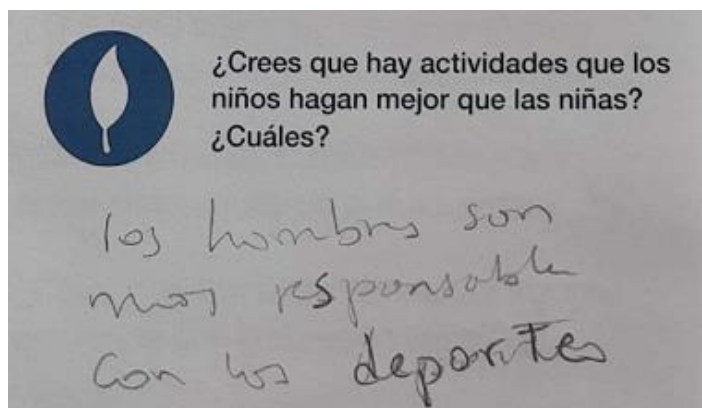 ¿Crees que hay actividades que los
niños hagan mejor que las niñas?
¿Cuáles?
los hombres son
mas responsable
con los deportes